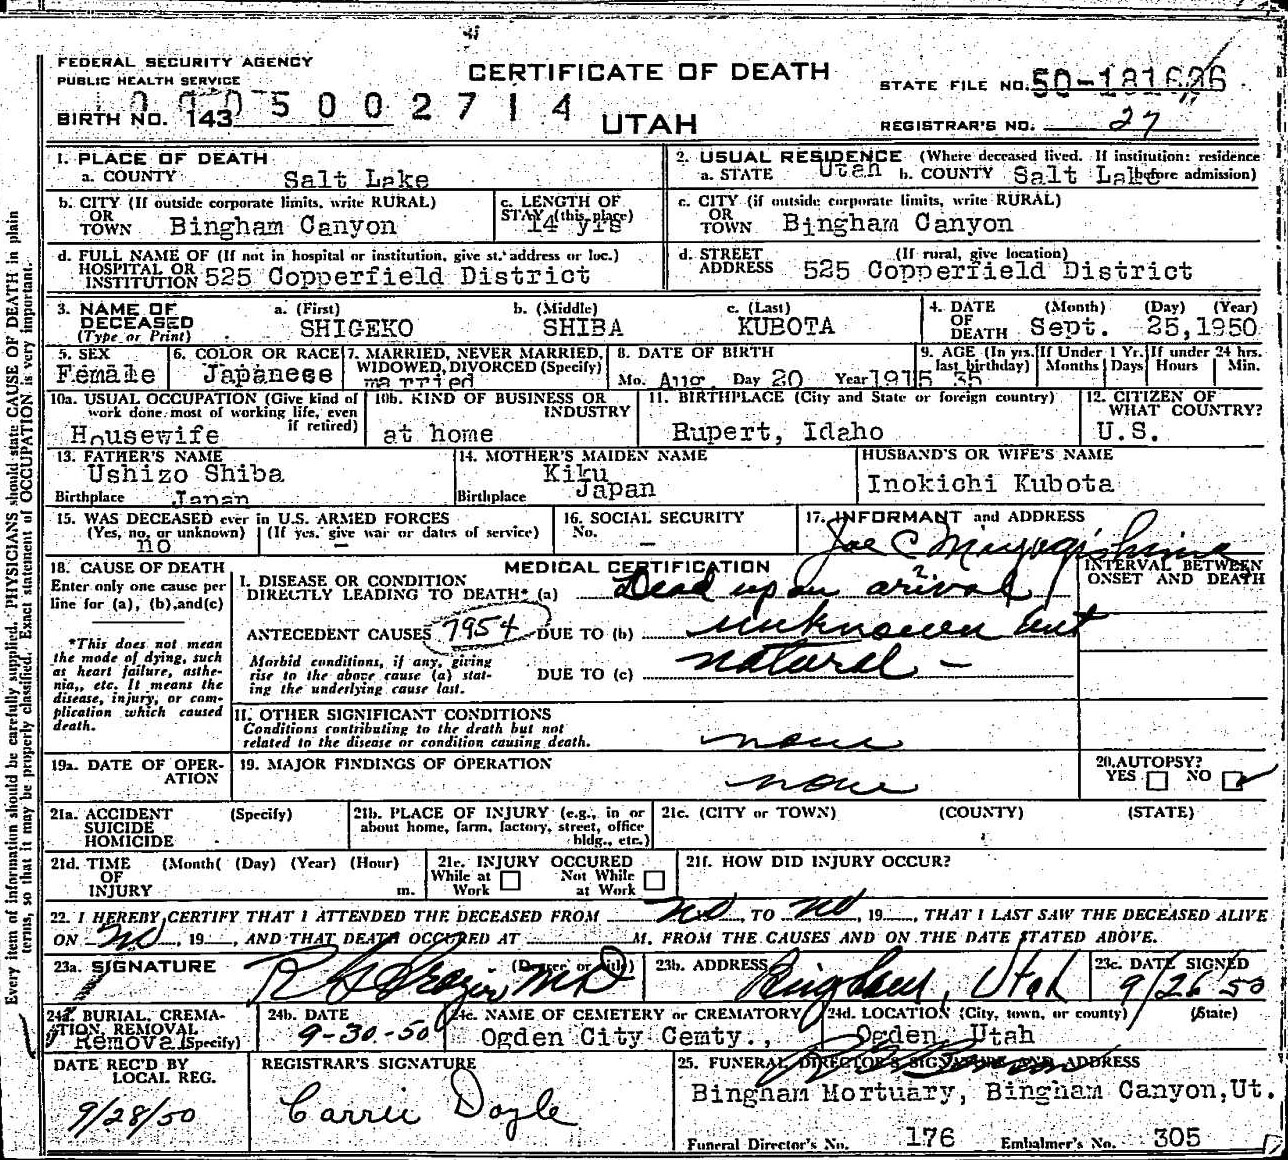 FEDERAL SECURITY AGENCY
PUBLIC HEALTH SERVICE
CERTIFICATE OF DEATH
STATE FILE NO. 50-181626
BIRTH NO. 143 5 0 0 2 7 1 4
UTAH
REGISTRAR'S NO. 27
1. PLACE OF DEATH
a. COUNTY Salt Lake
2. USUAL RESIDENCE (Where deceased lived. If institution: residence before admission)
a. STATE Utah b. COUNTY Salt Lake
b. CITY (If outside corporate limits, write RURAL)
OR
TOWN Bingham Canyon
c. LENGTH OF
STAY (this place)
14 yrs
c. CITY (if outside corporate limits, write RURAL)
OR
TOWN Bingham Canyon
d. FULL NAME OF (If not in hospital or institution, give st. address or loc.)
HOSPITAL OR
INSTITUTION 525 Copperfield District
d. STREET (If rural, give location)
ADDRESS 525 Copperfield District
3. NAME OF
DECEASED
(Type or Print)
a. (First) b. (Middle) c. (Last)
SHIGEKO SHIBA KUBOTA
4. DATE (Month) (Day) (Year)
OF
DEATH Sept. 25, 1950
5. SEX
Female
6. COLOR OR RACE
Japanese
7. MARRIED, NEVER MARRIED,
WIDOWED, DIVORCED (Specify)
married
8. DATE OF BIRTH
Mo. Aug. Day 20 Year 1915
9. AGE (In yrs. last birthday)
35
If Under 1 Yr.
Months Days
If under 24 hrs.
Hours Min.
10a. USUAL OCCUPATION (Give kind of
work done most of working life, even
if retired)
Housewife
10b. KIND OF BUSINESS OR
INDUSTRY
at home
11. BIRTHPLACE (City and State or foreign country)
Rupert, Idaho
12. CITIZEN OF
WHAT COUNTRY?
U.S.
13. FATHER'S NAME
Ushizo Shiba
Birthplace Japan
14. MOTHER'S MAIDEN NAME
Kiku
Birthplace Japan
HUSBAND'S OR WIFE'S NAME
Inokichi Kubota
15. WAS DECEASED ever in U.S. ARMED FORCES
(Yes, no, or unknown) (If yes, give war or dates of service)
no –
16. SOCIAL SECURITY
No. –
17. INFORMANT and ADDRESS
Joe C Miyagishima
18. CAUSE OF DEATH
Enter only one cause per
line for (a), (b), and (c)
*This does not mean
the mode of dying, such
as heart failure, asthe-
nia, etc. It means the
disease, injury, or com-
plication which caused
death.
MEDICAL CERTIFICATION
INTERVAL BETWEEN
ONSET AND DEATH
I. DISEASE OR CONDITION
DIRECTLY LEADING TO DEATH* (a) Dead upon arival
ANTECEDENT CAUSES 7954 DUE TO (b) unknown but
Morbid conditions, if any, giving
rise to the above cause (a) stat-
ing the underlying cause last.
DUE TO (c) natural –
II. OTHER SIGNIFICANT CONDITIONS
Conditions contributing to the death but not
related to the disease or condition causing death.
none
19a. DATE OF OPER-
ATION
19. MAJOR FINDINGS OF OPERATION
none
20. AUTOPSY?
YES NO
21a. ACCIDENT (Specify)
SUICIDE
HOMICIDE
21b. PLACE OF INJURY (e.g., in or
about home, farm, factory, street, office
bldg., etc.)
21c. (CITY or TOWN) (COUNTY) (STATE)
21d. TIME (Month( (Day) (Year) (Hour)
OF
INJURY m.
21e. INJURY OCCURED
While at Work Not While at Work
21f. HOW DID INJURY OCCUR?
22. I HEREBY CERTIFY THAT I ATTENDED THE DECEASED FROM no, TO no, 19__, THAT I LAST SAW THE DECEASED ALIVE
ON no, 19__, AND THAT DEATH OCCURED AT ____ M. FROM THE CAUSES AND ON THE DATE STATED ABOVE.
23a. SIGNATURE (Degree or title)
MD
23b. ADDRESS
Bingham, Utah
23c. DATE SIGNED
9/26/50
24a. BURIAL, CREMA-
TION, REMOVAL
(Specify)
Removal
24b. DATE
9-30-50
24c. NAME OF CEMETERY or CREMATORY
Ogden City Cemty.,
24d. LOCATION (City, town, or county) (State)
Ogden, Utah
DATE REC'D BY
LOCAL REG.
9/28/50
REGISTRAR'S SIGNATURE
Carrie Doyle
25. FUNERAL DIRECTOR'S SIGNATURE AND ADDRESS
Bingham Mortuary, Bingham Canyon, Ut.
Funeral Director's No. 176 Embalmer's No. 305
Every item of information should be carefully supplied. PHYSICIANS should state CAUSE OF DEATH in plain
terms, so that it may be properly classified. Exact statement of OCCUPATION is very important.